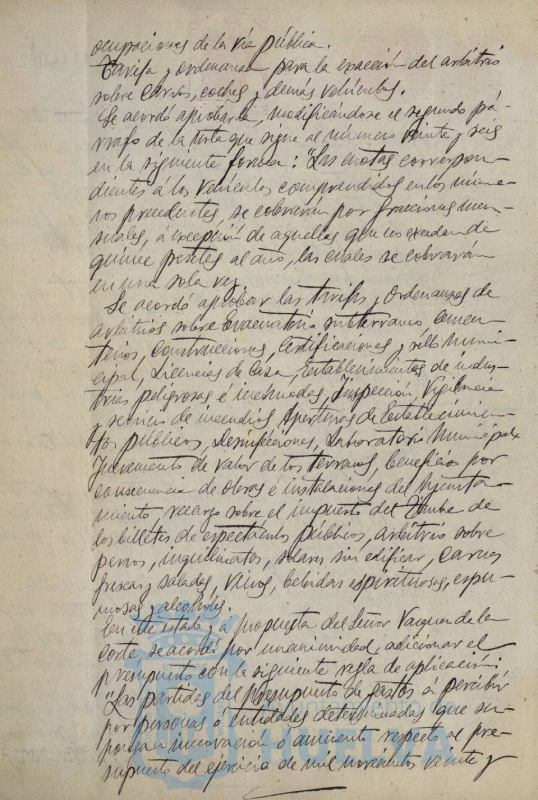 ocupaciones de la vía pública.
Tarifa y ordenanza para la exacción del arbitrio
sobre carros, coches y demás vehículos.
Se acordó aprobarla, modificándose el segundo pá-
rrafo de la nota que sigue al número veinte y seis
en la siguiente forma: "Las cuotas correspon-
dientes á los vehículos comprendidos en los núme-
ros precedentes, se cobrarán por fracciones men-
suales, á excepción de aquellas que no excedan de
quince pesetas al año, las cuales se cobrarán
en una sola vez.
Se acordó aprobar las tarifas y Ordenanzas de
arbitrios sobre Evacuatorio subterraneo, cemen-
terios, construcciones, Certificaciones y sello muni-
cipal, Licencias de Caza, Establecimientos de indus-
trias peligrosas é incómodas, Inspección, Vigilancia
y servicio de incendios, Aperturas de Establecimien-
tos públicos, desinfecciones, Laboratorio Municipal,
Incremento de valor de los terrenos, beneficios por
consecuencia de obras é instalaciones del Ayunta-
miento, recargo sobre el impuesto del Timbre de
los billetes de espectáculos públicos, arbitrio sobre
perros, inquilinatos, solares sin edificar, Carnes
frescas y saladas, Vinos, bebidas espirituosas, espu-
mosas y alcoholes.
En este estado y a propuesta del Señor Vazquez de la
Corte se acordó por unanimidad, adicionar el
presupuesto con la siguiente regla de aplicación:
"Las partidas del Presupuesto de gastos á percibir
por personas ó entidades determinadas que su-
pongan innovación ó aumento respecto al pre-
supuesto del ejercicio de mil novecientos veinte y
HUELVA